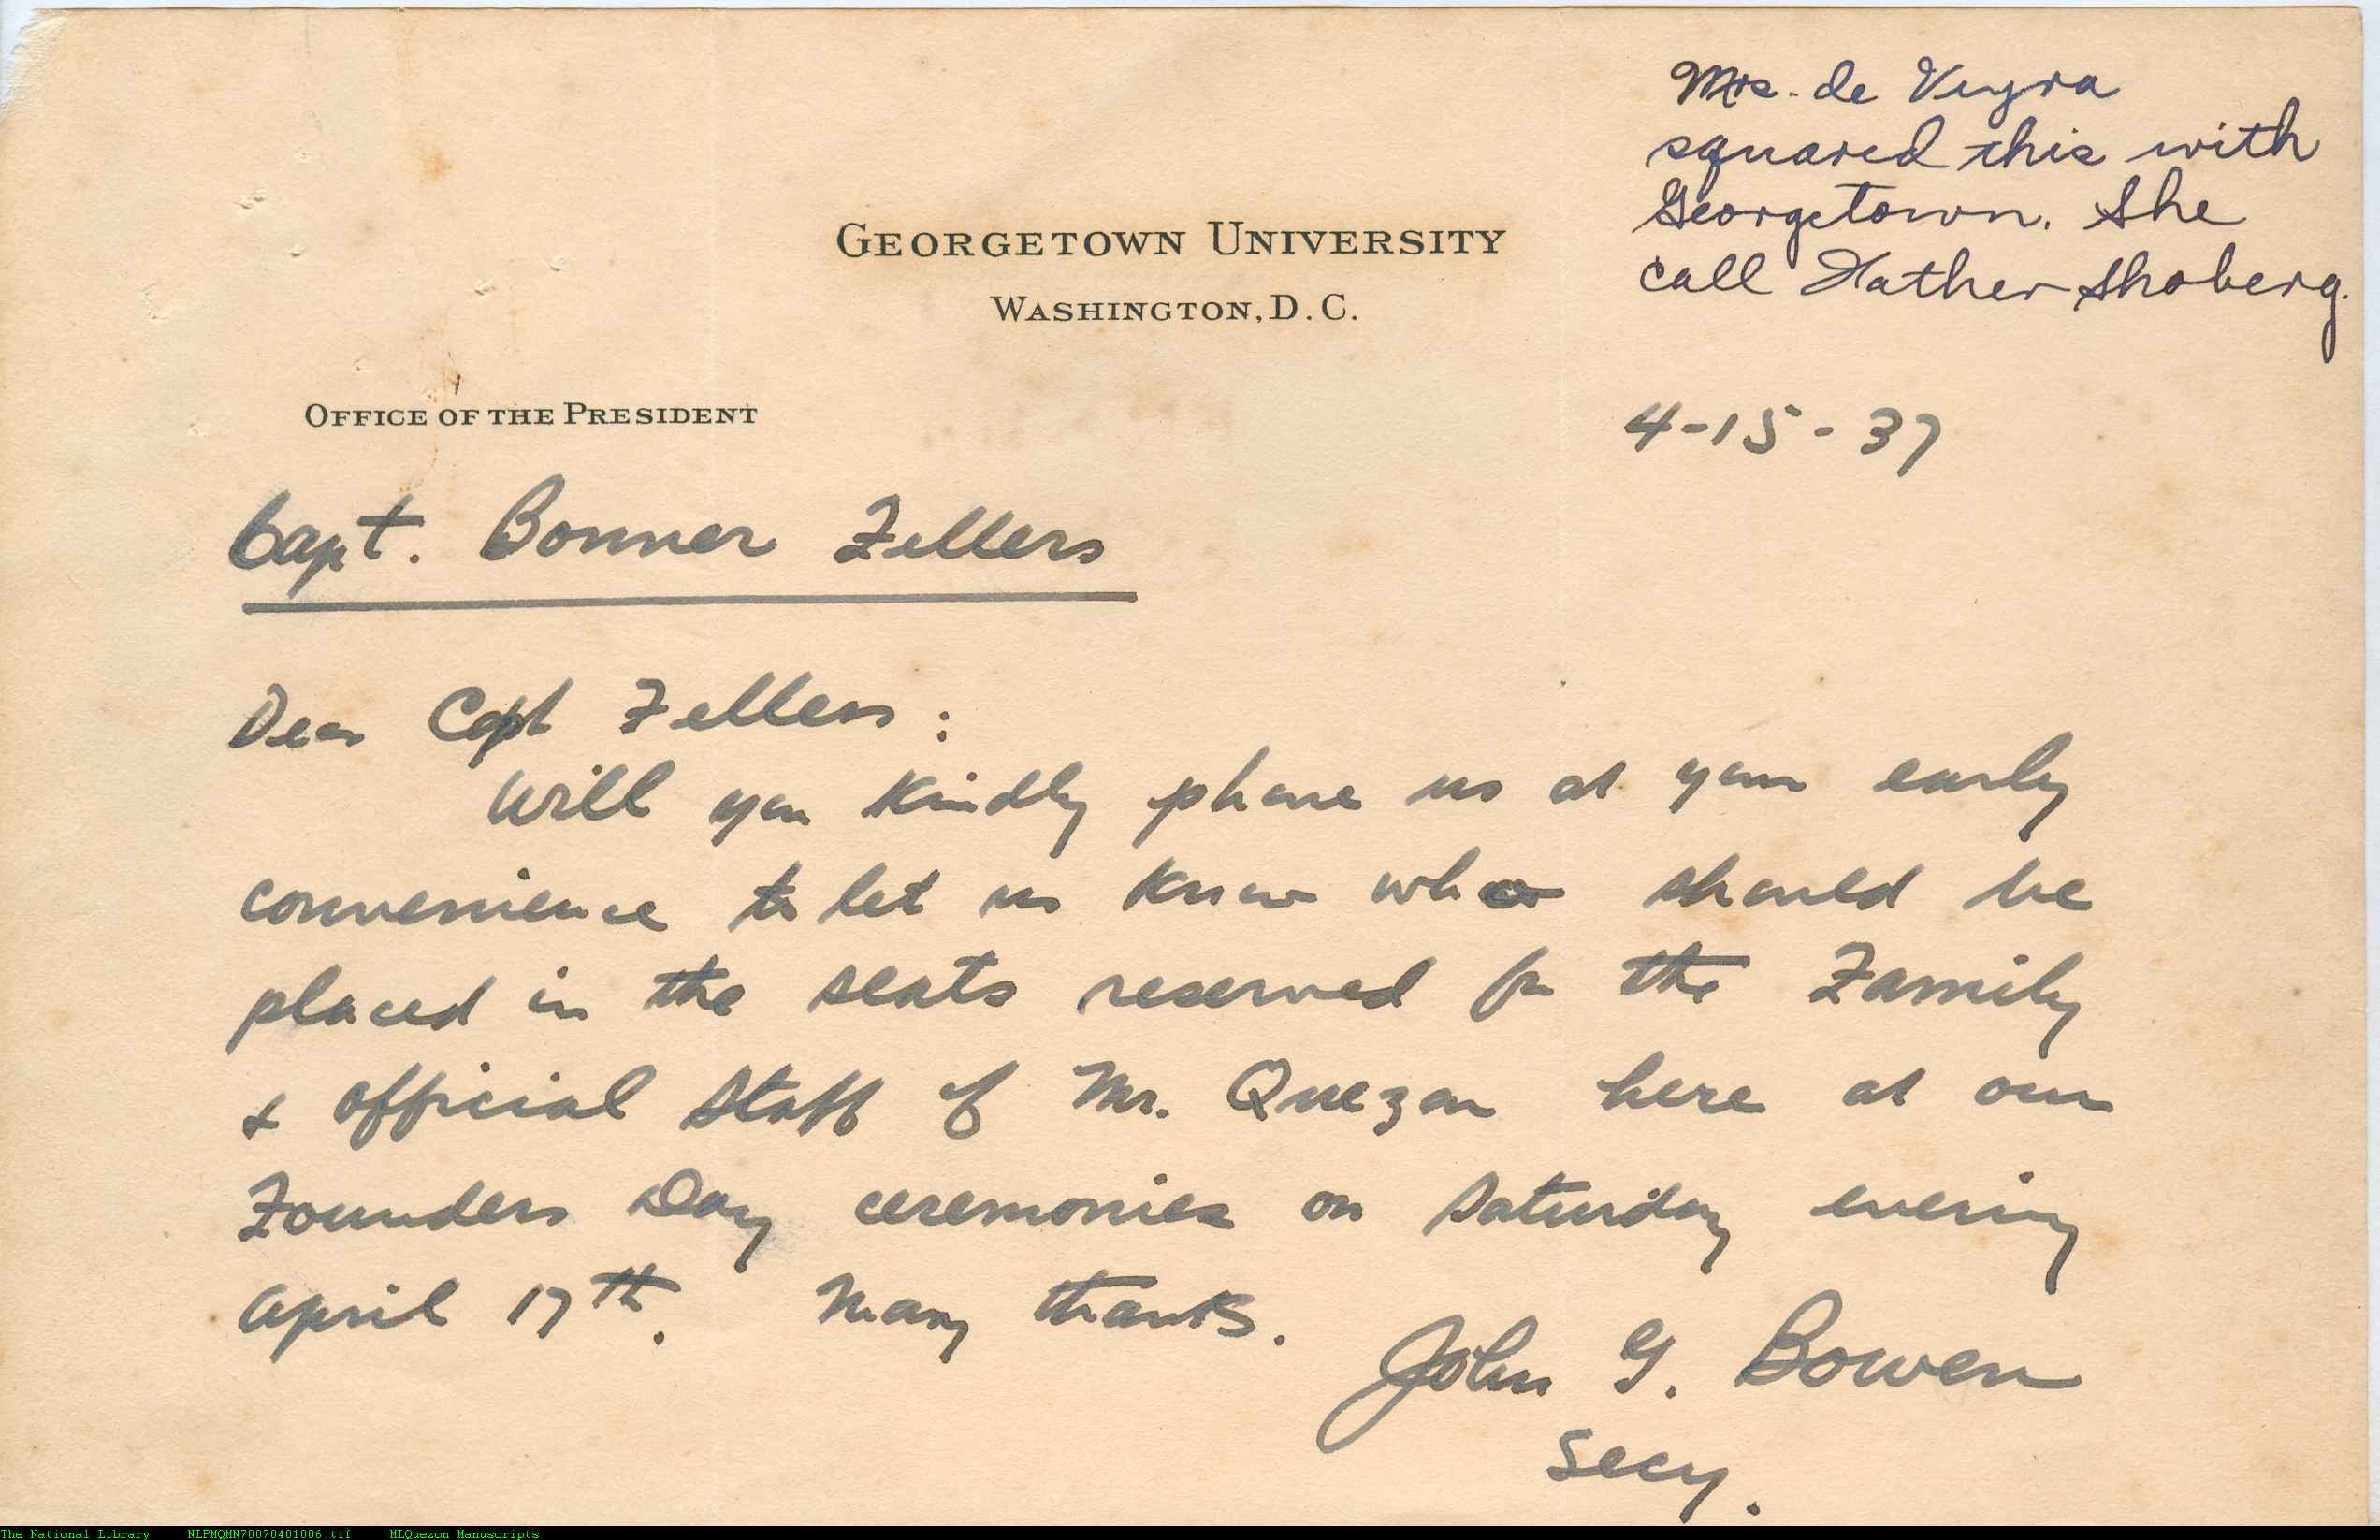 Mrs. de Veyra
squared this with
Georgetown. She
call Father Shoberg.
GEORGETOWN UNIVERSITY
WASHINGTON, D.C.
OFFICE OF THE PRESIDENT
4-15-37
Capt. Bonner Fellers
Dear Capt Fellers:
Will you kindly phone us at your early
convenience to let us know who should be
placed in the seats reserved for the Family
& official staff of Mr. Quezon here at our
Founders Day ceremonies on Saturday evening
April 17th. Many thanks.
John G. Bowen
Secy.
The National Library NLPMQMN70070401006.tif MLQuezon Manuscripts